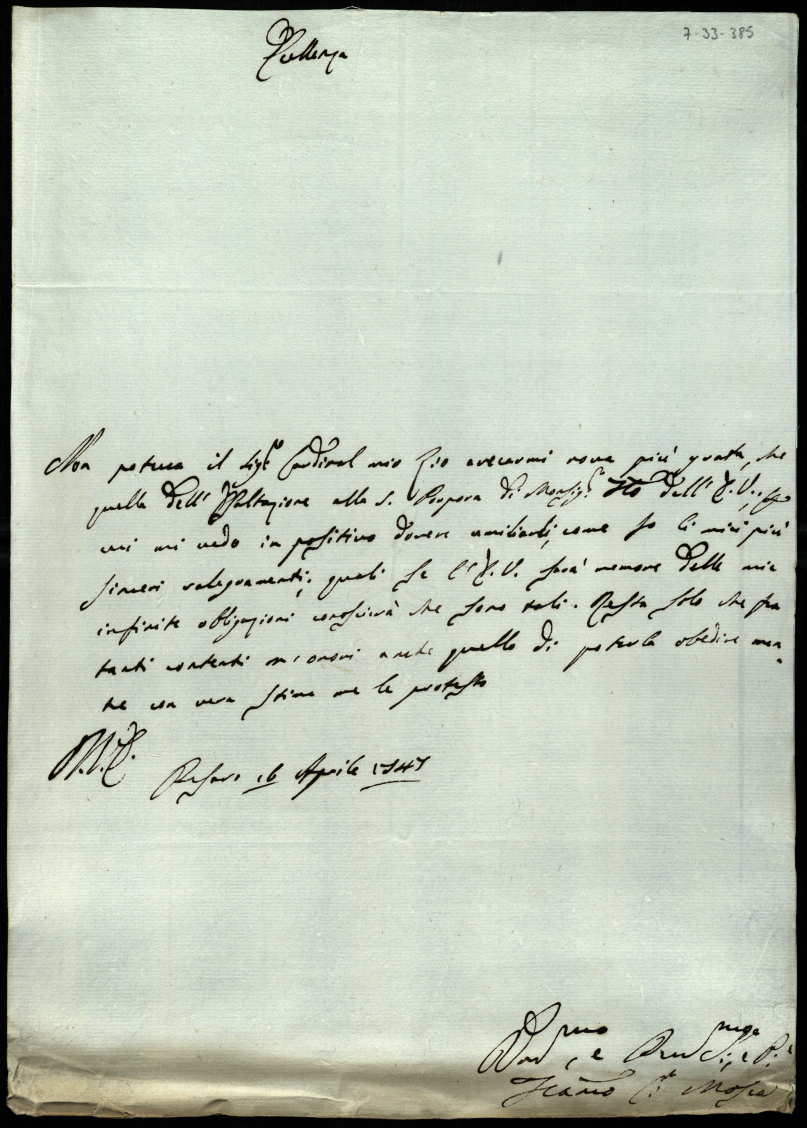 7-33-385
Eccellenza
Non poteva il Sig.r Cardinal mio Zio avecarmi nova più grata, che
quella dell'Esaltazione alla S. Porpora di Monsig.r dell'E.V.,
mi vedo in positivo dovere umiliarli, come fo li miei più
sinceri rallegramenti; quali se l'E.V. sarà memore delle mie
infinite obligazioni conoscerà che sono tali. Resta solo che fra
tanti contenti m'onori anche quello di poterla obedire men-
tre con vera stima me le protesto
D.V.E.
Pesaro 16 Aprile 1747
Mosca